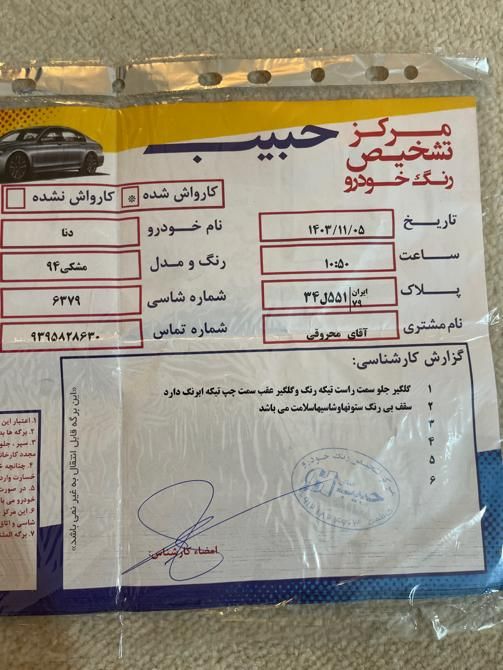 مرکز تشخیص رنگ خودرو حبیب
کارواش شده * کارواش نشده
تاریخ ۱۴۰۳/۱۱/۰۵
نام خودرو دنا
ساعت ۱۰:۵۰
رنگ و مدل مشکی۹۴
پلاک ایران ۷۹ ۵۵۱ل۳۴
شماره شاسی ۶۳۷۹
نام مشتری آقای محروقی
شماره تماس ۹۳۹۵۸۲۸۶۳۰
گزارش کارشناسی:
۱ گلگیر جلو سمت راست تیکه رنگ وگلگیر عقب سمت چپ تیکه ابرنگ دارد
۲ سقف بی رنگ ستونهاوشاسیهاسلامت می باشد
۳
۴
۵
۶
امضاء کارشناس:
«این برگه قابل انتقال به غیر نمی باشد»
۱. اعتبار این
۲. برگه ها بد
۳. سپر، جلو
مجدد کارخانه
۴. چنانچه
خسارت وارد
۵. در صورت
خودرو می با
۶. این مرکز
شاسی و اتاق
۷. برگه المثنی